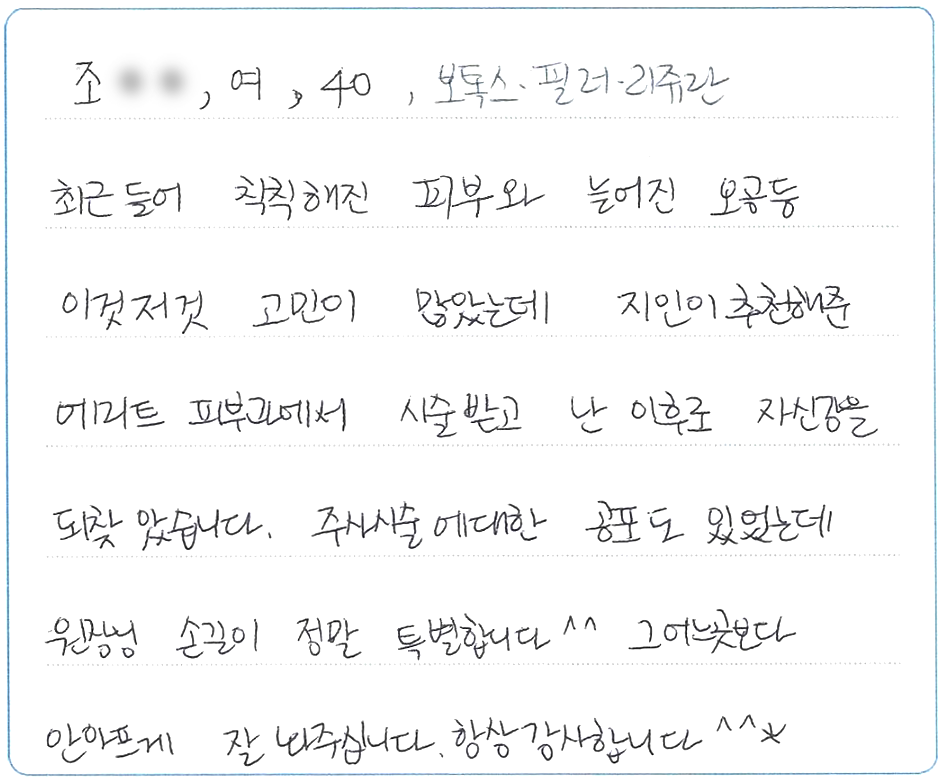 조, 여, 40, 보톡스·필러·리쥬란
최근 들어 칙칙해진 피부와 늘어진 모공등
이것저것 고민이 많았는데 지인이 추천해준
에미트 피부과에서 시술받고 난 이후로 자신감을
되찾았습니다. 주사시술에대한 공포도 있었는데
원장님 손길이 정말 특별합니다^^ 그어느곳보다
안아프게 잘 놔주십니다. 항상 감사합니다^^*